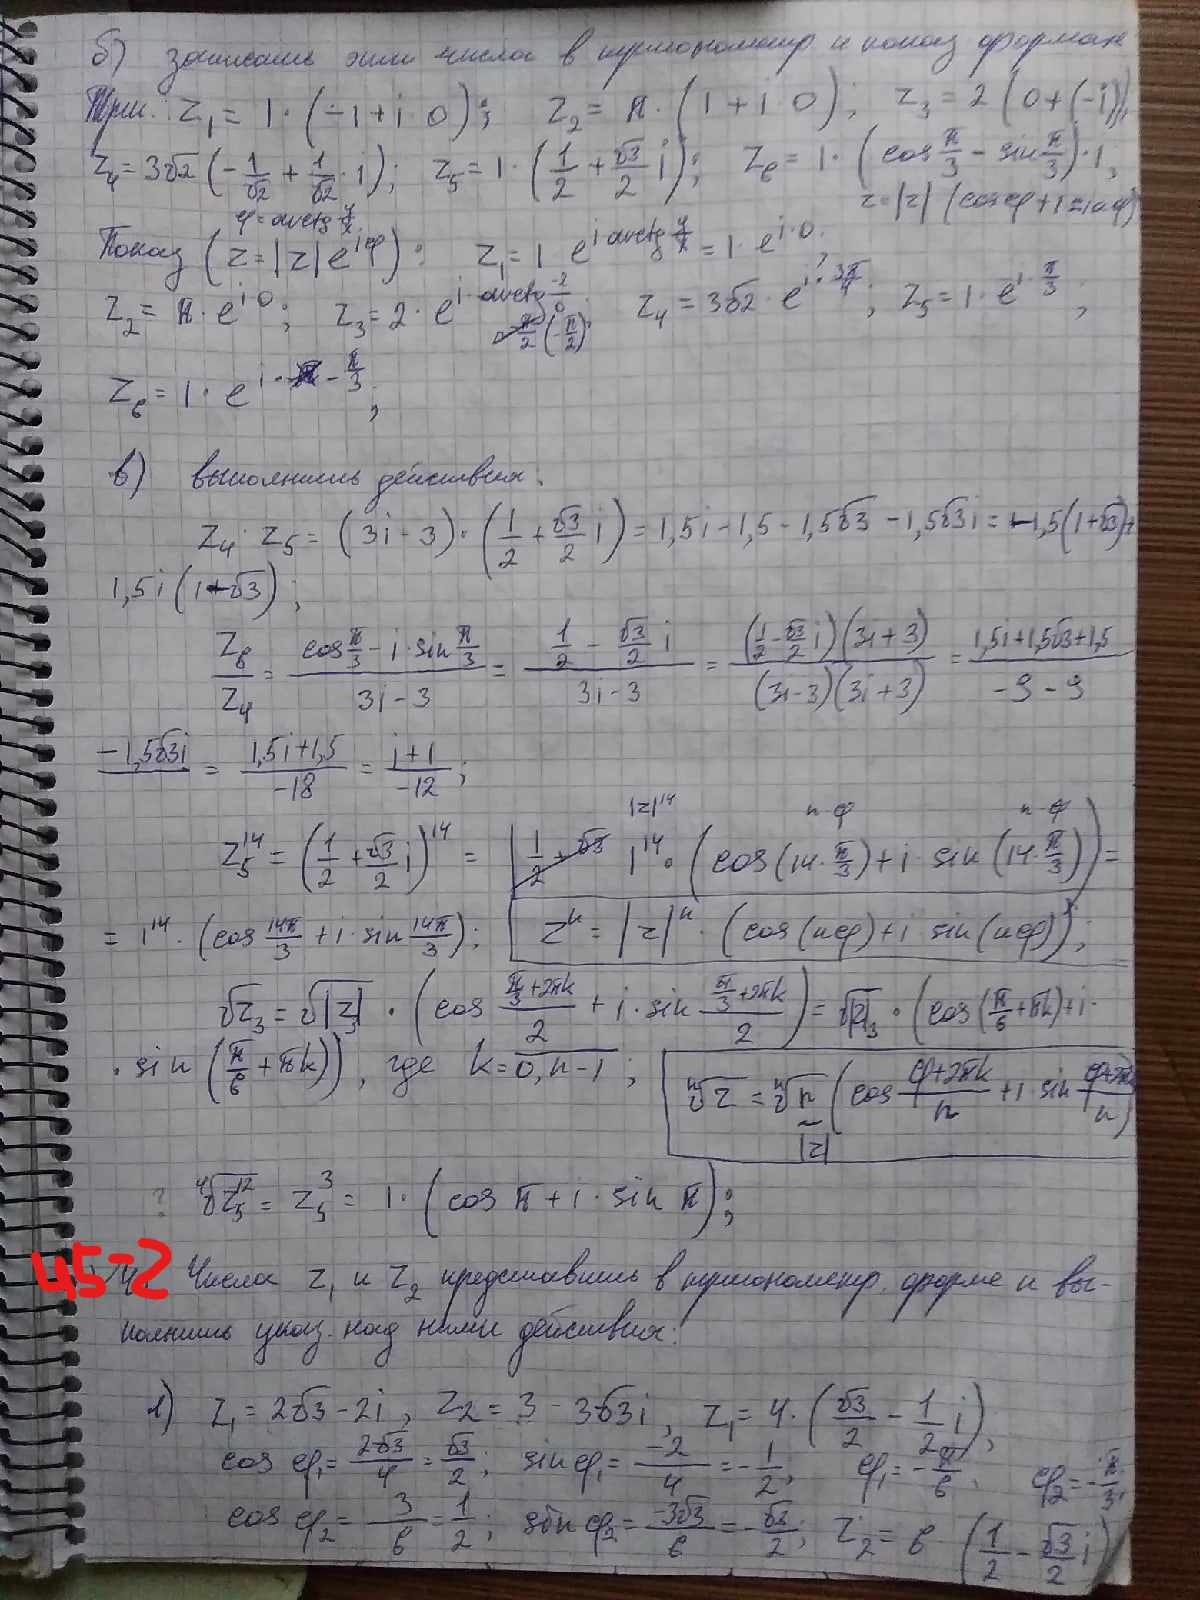 б) записать эти числа в тригонометр. и показ. формах
Триг.: z₁ = 1·(-1+i·0); z₂ = π·(1+i·0); z₃ = 2(0+(-i));
z₄ = 3√2(-1/√2 + 1/√2·i); z₅ = 1·(1/2 + √3/2 i); z₆ = 1·(cos π/3 - sin π/3)·i;
φ = arctg y/x z = |z|(cosφ + i sinφ)
Показ (z = |z|e^(iφ)): z₁ = 1·e^(i arctg y/x) = 1·e^(i·0);
z₂ = π·e^(i·0); z₃ = 2·e^(i·arctg -2/0); z₄ = 3√2·e^(i·3π/4); z₅ = 1·e^(i·π/3);
(-π/2)
z₆ = 1·e^(i·-π/3);
в) выполнить действия:
z₄·z₅ = (3i-3)·(1/2 + √3/2 i) = 1,5i - 1,5 - 1,5√3 - 1,5√3i = -1,5(1+√3)+
1,5i(1-√3);
z₆/z₄ = (cos π/3 - i·sin π/3)/(3i-3) = (1/2 - √3/2 i)/(3i-3) = ((1/2 - √3/2 i)(3i+3))/((3i-3)(3i+3)) = (1,5i+1,5√3+1,5)/(-9-9)
-1,5√3i = (1,5i+1,5)/-18 = (i+1)/-12;
|z|¹⁴ n·φ n·φ
z₅¹⁴ = (1/2 + √3/2 i)¹⁴ = 1¹⁴·(cos(14·π/3) + i·sin(14·π/3)) =
= 1¹⁴·(cos 14π/3 + i·sin 14π/3); zⁿ = |z|ⁿ·(cos(nφ) + i·sin(nφ));
√z₃ = √|z₃|·(cos (π/3+2πk)/2 + i·sin (π/3+2πk)/2) = √|z|₃·(cos(π/6+πk)+i·
·sin(π/6+πk)), где k = 0,n-1; ⁿ√z = ⁿ√r(cos (φ+2πk)/n + i·sin (φ+2πk)/n)
|z|
? ⁴√z₅¹² = z₅³ = 1·(cos π + i·sin π);
45-2 Числа z₁ и z₂ представить в тригонометр. форме и вы-
полнить указ. над ними действия:
1) z₁ = 2√3 - 2i, z₂ = 3 - 3√3i, z₁ = 4·(√3/2 - 1/2 i);
cos φ₁ = 2√3/4 = √3/2; sin φ₁ = -2/4 = -1/2; φ₁ = -π/6; φ₂ = -π/3;
cos φ₂ = 3/6 = 1/2; sin φ₂ = -3√3/6 = -√3/2; z₂ = 6(1/2 - √3/2 i)